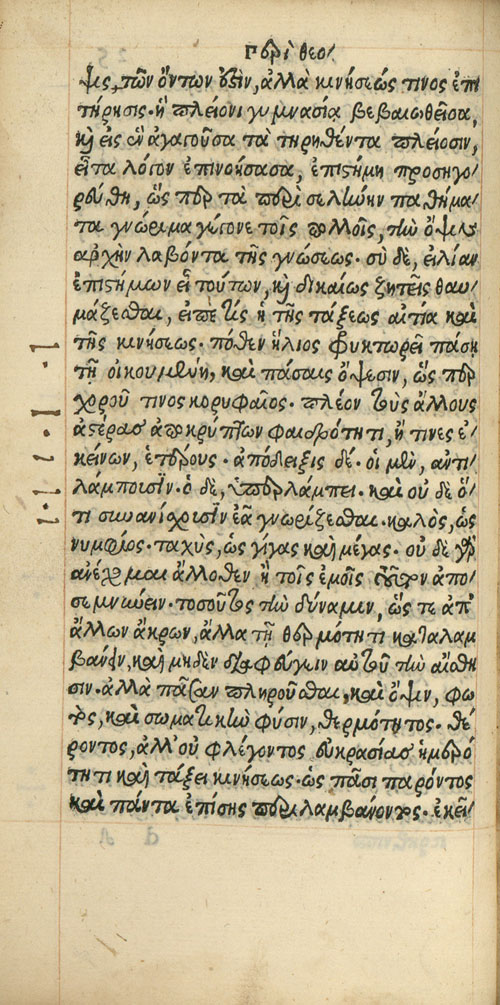 Περὶ θεο/
ψις, τῶν ὄντων ἐστὶν, ἀλλὰ κινήσεώς τινος ἐπι
τήρησις. ἣ πλείονι γυμνασίᾳ βεβαιωθεῖσα,
καὶ εἰς ἓν ἀγαγοῦσα τὰ τηρηθέντα πλείοσιν,
εἶτα λόγον ἐπινοήσασα, ἐπιστήμη προσηγο/
ρεύθη, ὥσπερ τὰ περὶ σελήνην παθήμα/
τα γνώριμα γέγονε τοῖς πολλοῖς, τὴν ὄψιν
ἀρχὴν λαβόντα τῆς γνώσεως. σὺ δὲ, εἰ λίαν
ἐπιστήμων εἶ τούτων, καὶ δικαίως ζητεῖς θαυ/
μάζεσθαι, εἰπὲ τίς ἡ τῆς τάξεως αἰτία καὶ
τῆς κινήσεως. πόθεν ἥλιος φρυκτωρεῖ πάσῃ
τῇ οἰκουμένῃ, καὶ πάσαις ὄψεσιν, ὥσπερ
χοροῦ τινος κορυφαῖος. πλέον τοὺς ἄλλους
ἀστέρας ἀποκρύπτων φαιδρότητι, ἤ τινες ἐ/
κείνων, ἑτέρους. ἀπόδειξις δέ. οἱ μὲν, ἀντι/
λάμπουσιν. ὁ δὲ, ὑπερλάμπει. καὶ οὐδὲ ὅ/
τι συνανίσχουσιν ἐᾷ γνωρίζεσθαι. καλὸς, ὡς
νυμφίος. ταχὺς, ὡς γίγας καὶ μέγας. οὐδὲ γὰρ
ἀνέχομαι ἄλλοθεν ἢ τοῖς ἐμοῖς τοῦτον ἀπο/
σεμνύνειν. τοσοῦτος τὴν δύναμιν, ὥστε ἀπ'
ἄλλων ἄκρων, ἄλλα τῇ θερμότητι καταλαμ
βάνειν, καὶ μηδὲν διαφεύγειν αὐτοῦ τὴν αἴσθη
σιν. ἀλλὰ πᾶσαν πληροῦσθαι, καὶ ὄψιν, φω
τὸς, καὶ σωματικὴν φύσιν, θερμότητος. θέ/
ροντος, ἀλλ' οὐ φλέγοντος εὐκρασίας ἡμερό
τητι καὶ τάξει κινήσεως. ὡς πᾶσι παρόντος
καὶ πάντα ἐπίσης περιλαμβάνοντος. ἐκεῖ/